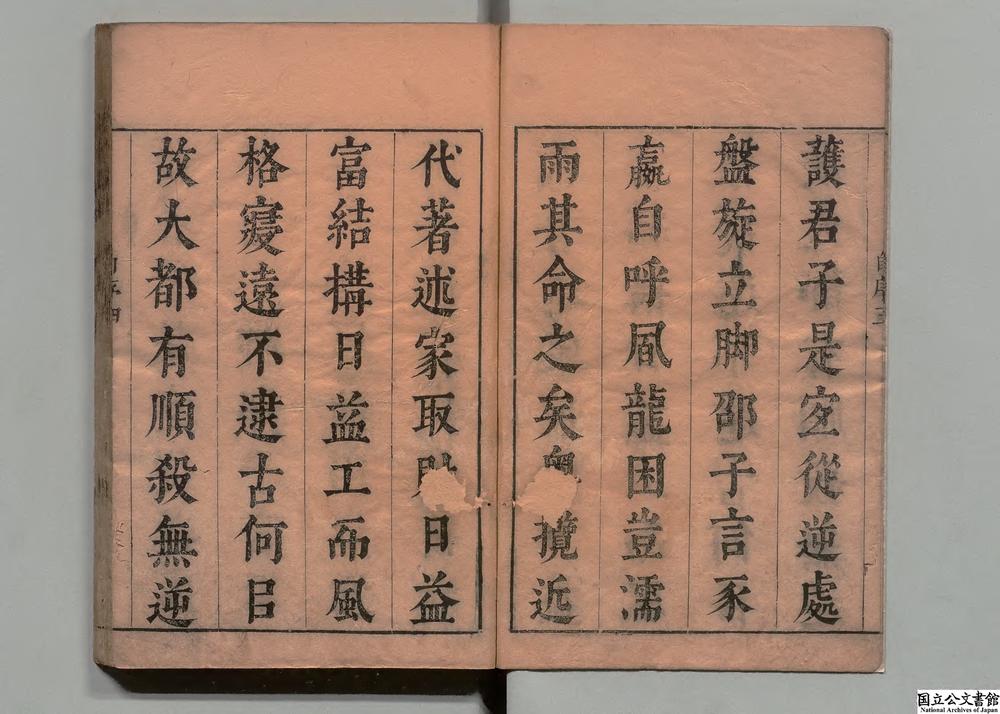 護君子是空從逆處
盤旋立脚邵子言豕
羸自呼風龍困豈濡
雨其命之矣攬近
代著述家取日益
富結搆日益工而風
格寖遠不逮古何㠯
故大都有順殺無逆
国立公文書館
National Archives of Japan